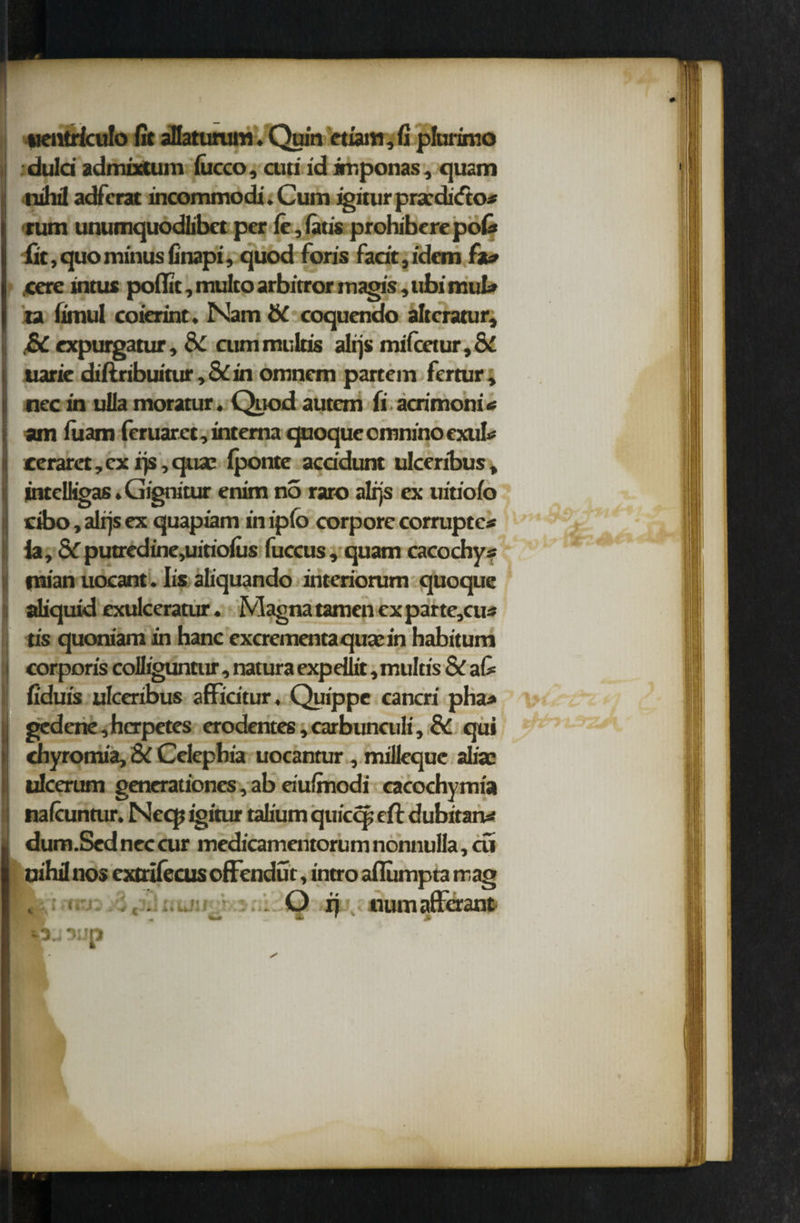 uentriculo ſit allaturum. Quin etiam, ſi plurimo
dulci admixtum ſucco, cuti id imponas, quam
nihil adferat incommodi. Cum igitur prædicto⸗
rum unumquodlibet per ſe, ſatis prohibere poſ⸗
ſit, quo minus ſinapi, quod foris facit, idem fa⸗
cere intus poſſit, multo arbitror magis, ubi mul⸗
ta ſimul coierint. Nam & coquendo alteratur,
& expurgatur, & cum multis alijs miſcetur, &
uarie diſtribuitur, & in omnem partem fertur,
nec in ulla moratur. Quod autem ſi acrimoni⸗
am ſuam ſeruaret, interna quoque omnino exul⸗
ceraret, ex ijs, quæ ſponte accidunt ulceribus,
intelligas. Gignitur enim nō raro alijs ex uitioſo
cibo, alijs ex quapiam in ipſo corpore corrupte⸗
la, & putredine, uitioſus ſuccus, quam cacochy⸗
mian uocant. Iis aliquando interiorum quoque
aliquid exulceratur. Magna tamen ex parte, cu⸗
tis quoniam in hanc excrementa quæ in habitum
corporis colliguntur, natura expellit, multis & aſ⸗
ſiduis ulceribus afficitur. Quippe cancri pha⸗
gedene, herpetes erodentes, carbunculi, & qui
chyromia, & Celephia uocantur, milleque aliæ
ulcerum generationes, ab eiuſmodi cacochymia
naſcuntur. Neqꝫ igitur talium quicqꝫ eſt dubitan⸗
dum. Sed nec cur medicamentorum nonnulla, cū
nihil nos extriſecus offendūt, intro aſſumpta mag
O ij num afferant